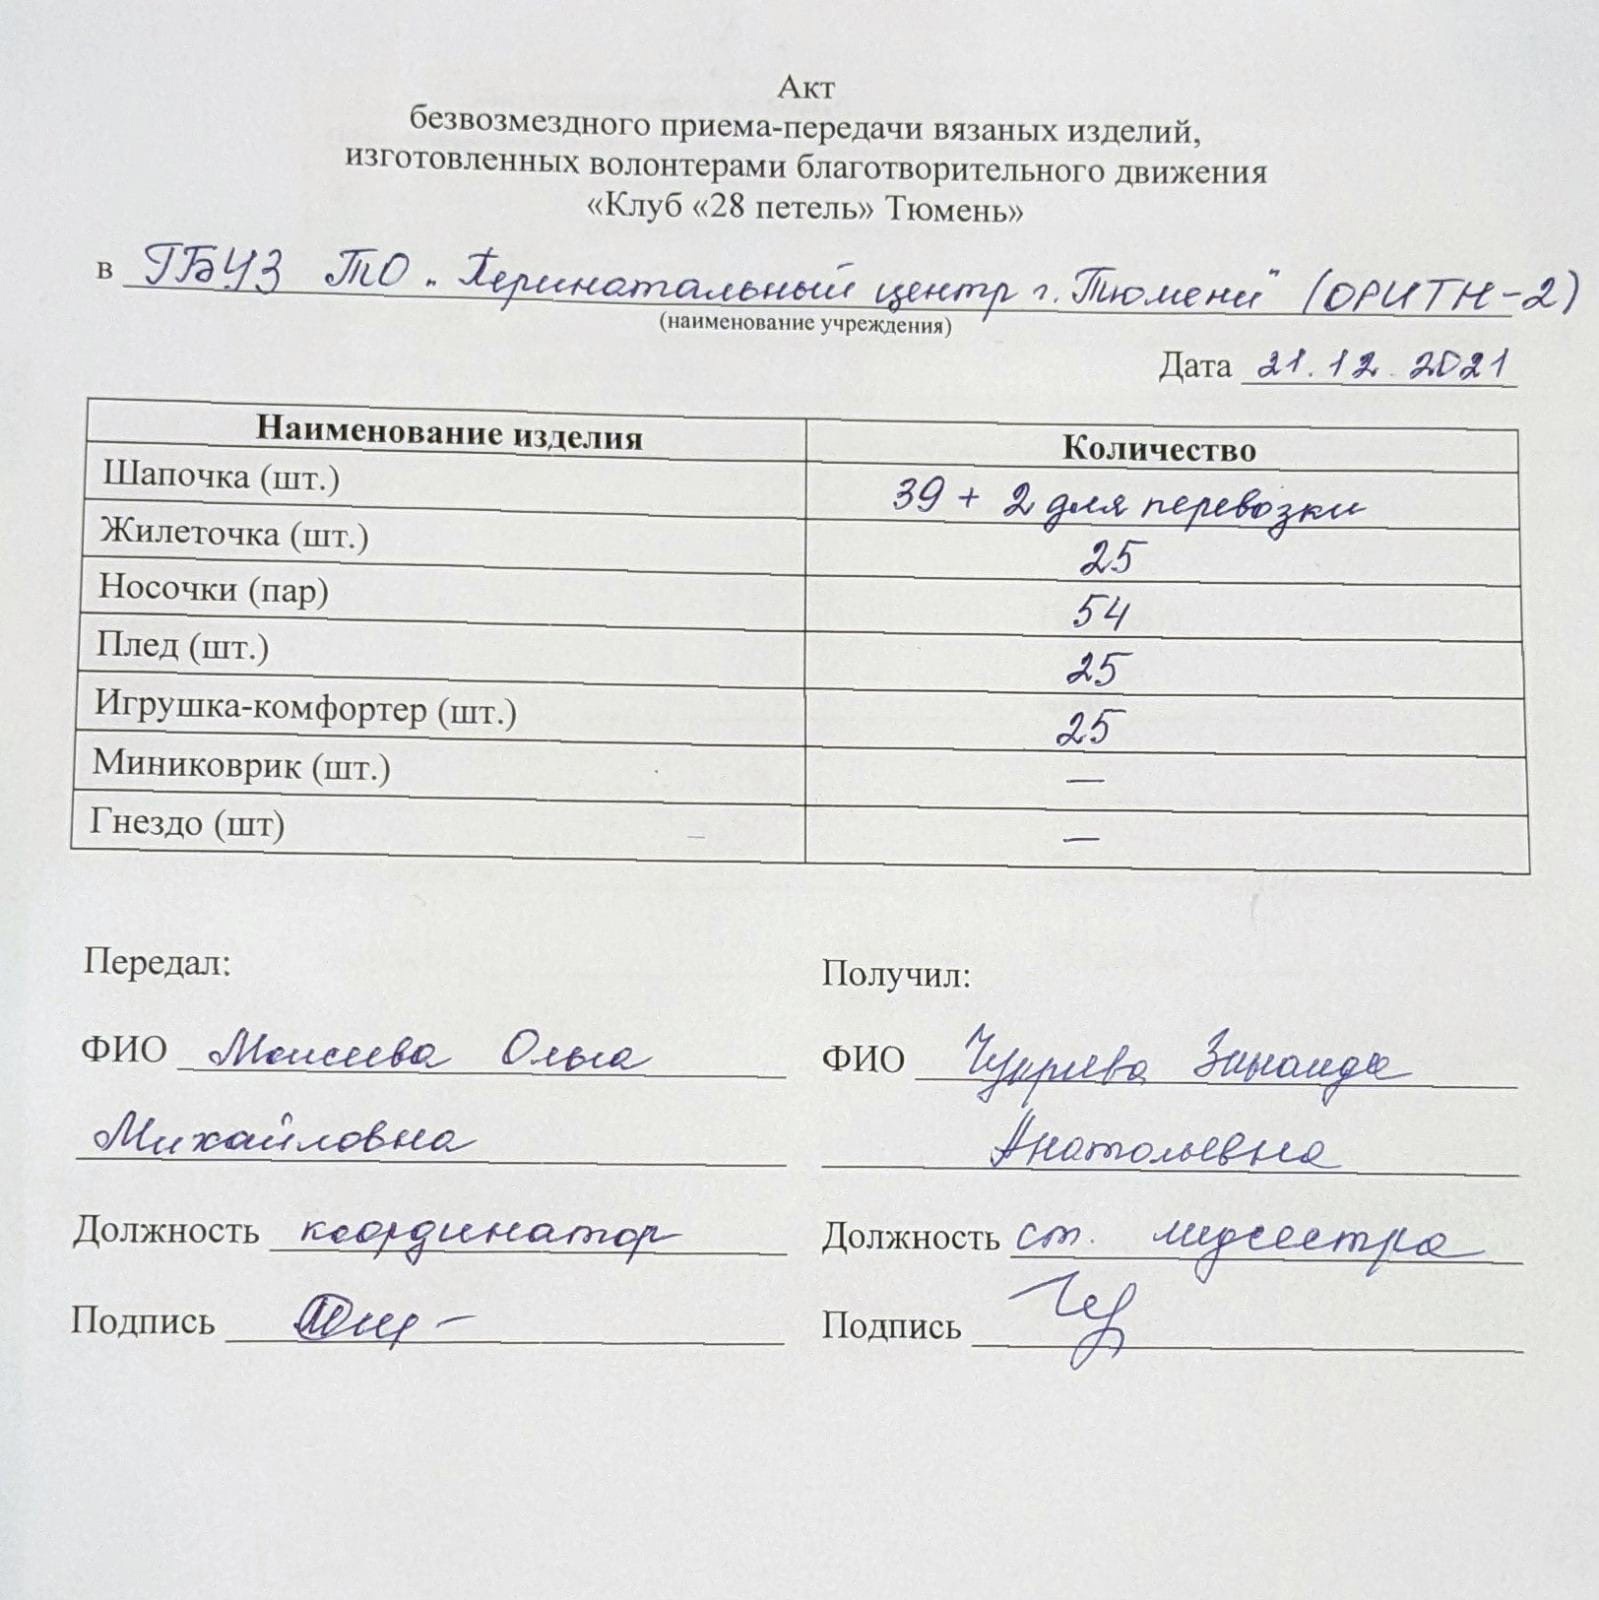 Акт
безвозмездного приема-передачи вязаных изделий,
изготовленных волонтерами благотворительного движения
«Клуб «28 петель» Тюмень»
в ГБУЗ ТО „Перинатальный центр г. Тюмени" (ОРИТН-2)
(наименование учреждения)
Дата 21.12.2021
Наименование изделия Количество
Шапочка (шт.) 39 + 2 для перевозки
Жилеточка (шт.) 25
Носочки (пар) 54
Плед (шт.) 25
Игрушка-комфортер (шт.) 25
Миниковрик (шт.) —
Гнездо (шт) —
Передал: Получил:
ФИО Моисеева Ольга ФИО Зинаида
Михайловна Анатольевна
Должность координатор Должность ст. медсестра
Подпись Подпись